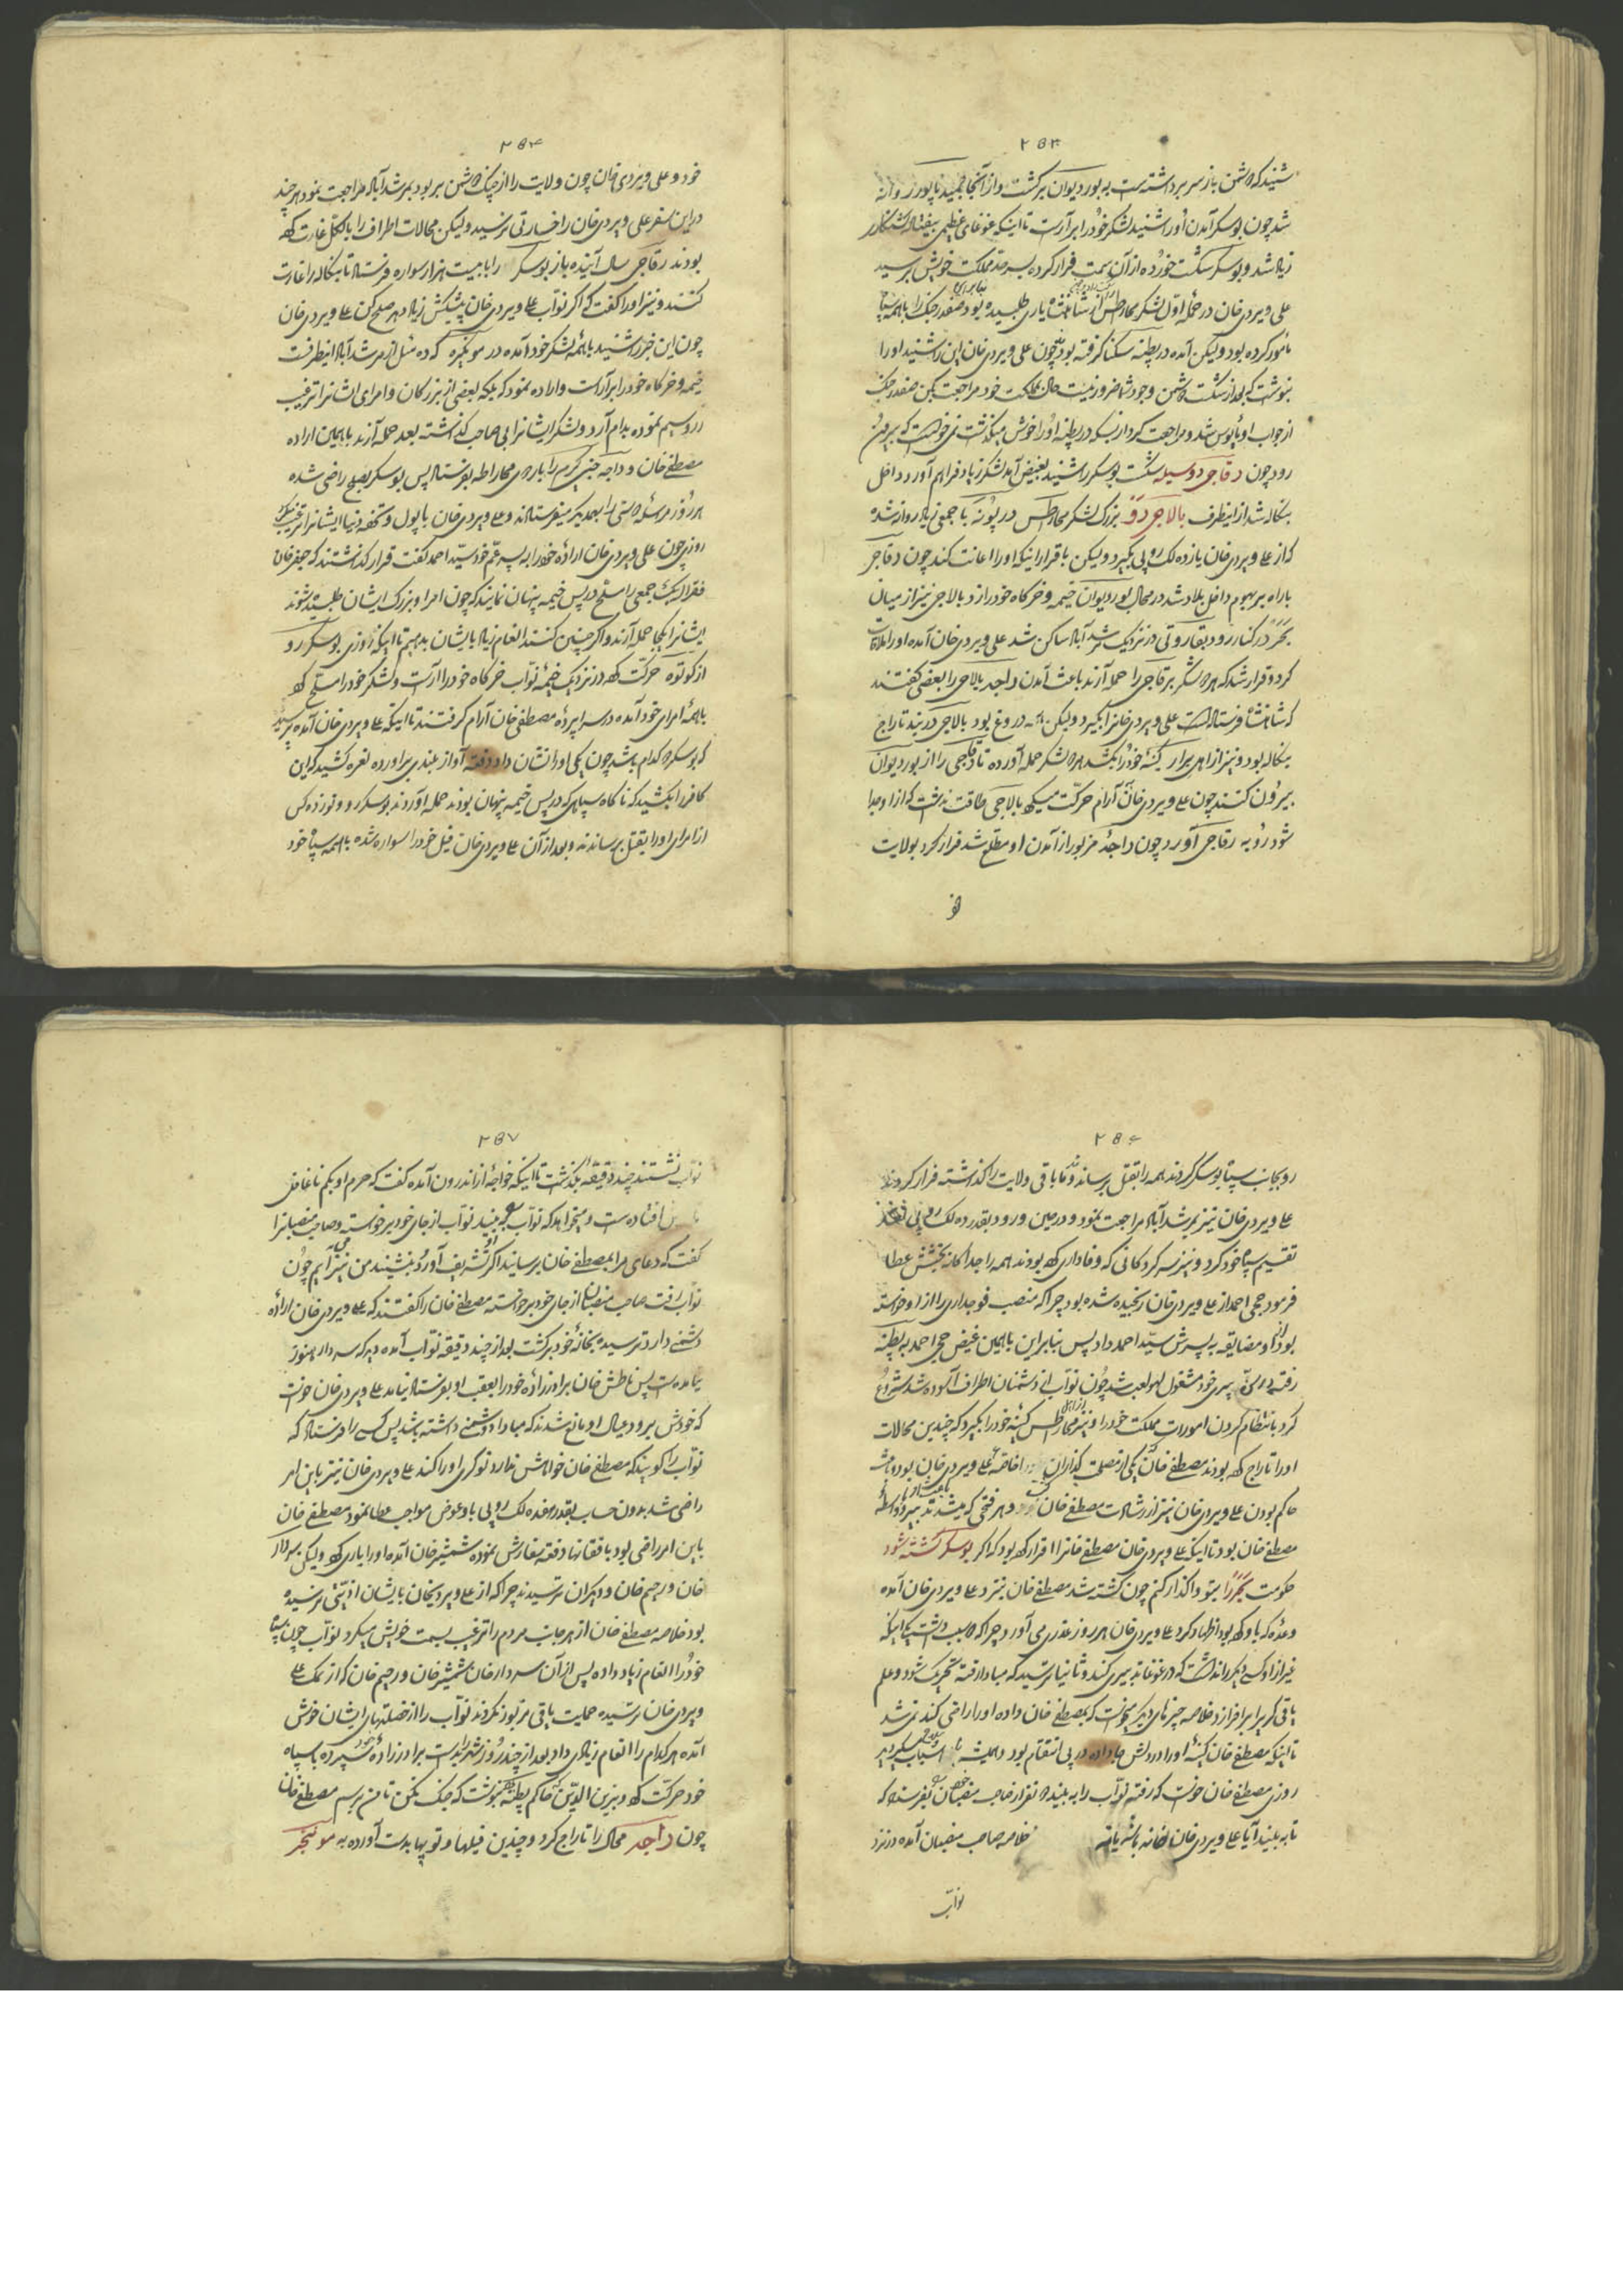 ۲۵۴
شنید که دشمن باز سر برداشته است به بوردیوان برگشت و از آنجا روانه
شد چون بوسکر آمدن او را شنید لشکر خود را برآراست تا اینکه غوغای عظیمی
زیاد شد و بوسکر شکست خورده از آن سمت فرار کرده بسرحد مملکت خویش برسید
علی ویردی خان در حملهٔ اول لشکر از شاهنشاه یاری طلبیده بود صفدر جنگ را با همه سپاه
مامور کرده بود ولیکن آمده در پطنه سکنا گرفته بود چون علی ویردی خان این را شنید او را
نوشت که بعد از شکست دشمن وجود شما ضرور نیست حال بمملکت خود مراجعت بکن صفدر جنگ
از جواب او مایوس شد و مراجعت کرد از بسکه در پطنه او را خوش میگذشت نمی خواست که بیرون
رود چون رقاجی دوسیله شکست بوسکر را شنید بغیض آمد لشکر زیاد فراهم آورد داخل
بنکاله شد از اینطرف بالاجی رو بزرک لشکر در پونه با جمعی زیاد روانه شده
که از علی ویردی خان یازده لک روپی بگیرد ولیکن باقرار اینکه او را اعانت کند چون رقاجی
با راه بیربهوم داخل بلاد شد در محال بوردیوان خیمه و خرکاه خود را زد بالاجی نیز از میان
در کنار رود در نزدیک مرشدآباد ساکن شد علی ویردی خان آمده او را ملاقات
کرد و قرار شد که هر دو لشکر بر رقاجی را حمله آرند باعث آمدن راجه بالاجی را بعضی گفتند
که شاهنشاه فرستاده است علی ویردی خانرا بگیرد ولیکن همه دروغ بود بالاجی در بند تاراج
بنکاله بود و نیز از اهل برار کینهٔ خود را بکشد هر دو لشکر حمله آورده تا رقاجی را از بوردیوان
بیرون کنند چون علی ویردی خان آرام حرکت میکرد بالاجی طاقت نداشت که از او جدا
شود رو به رقاجی آورد چون راجهٔ مزبور از آمدن او مطلع شد فرار کرد بولایت
خو
۲۵۵
خود و علی ویردی خان چون ولایت را از چنگ دشمن بربود بمرشدآباد مراجعت نمود هر چند
در این سفر علی ویردی خان را خسارتی نرسید ولیکن محالات اطراف را بالکل غارت کرده
بودند رقاجی سال آینده باز بوسکر را با بیست هزار سواره فرستاد تا بنکاله را غارت
کنند و نیز او را گفت که اگر نواب علی ویردی خان پیشکش زیاد دهد صلح کن علی ویردی خان
چون این خبر را شنید با همه لشکر خود آمده در مونکره که ده میل از مرشدآباد اینطرفست
خیمه و خرکاه خود را برآراست و اراده نمود که بلکه بعضی از بزرکان و امرای ایشانرا ترغیب
زر و سیم نموده بدام آرد و لشکر ایشانرا بی صاحب گذاشته بعد حمله آرند باهمین اراده
مصطفی خان و راجه را باردوی بفرستاد پس بوسکر بصلح راضی شده
هر روز مراسله دوستی را بهمدیکر میفرستادند و علی ویردی خان با پول و تحفه دنیا ایشانرا ترغیب میکرد
روزی چون علی ویردی خان ارادهٔ خود را به پسر عم خود سید احمد گفت قرار گذاشتند که جعفر خان
جمعی را مسلح در پس خیمه پنهان نمایند که چون امرا و بزرک ایشان طلبیده شوند
ایشانرا یکجا حمله آرند و اگر چنین کنند انعام زیاد بایشان بدهیم تا اینکه روزی بوسکر رو
از کوتوه حرکت کرده در نزدیک خیمهٔ نواب خرکاه خود را آراست و لشکر خود را مسلح کرده
با همهٔ امرای خود آمده در سراپردهٔ مصطفی خان آرام گرفتند تا اینکه علی ویردی خان آمده پرسید
که بوسکر کدام باشد چون یکی او را نشان داد دفعة آواز بلندی برآورده نعره کشید که این
کافر را بکشید که ناکاه سپاهی که در پس خیمه پنهان بودند حمله آوردند بوسکر رو و نوزده کس
از امرای او را بقتل برساندند و بعد از آن علی ویردی خان فیل خود را سواره شده با همه سپاه خود
۲۵۶
رو بجانب سپاه بوسکر کردند همه را بقتل برساند و باقی ولایت را گذاشته فرار کردند
علی ویردی خان نیز بمرشدآباد مراجعت نمود و در حین ورود بقدر ده لک روپی نقد
تقسیم سپاه خود کرد و نیز سرکردکانی که وفاداری کرده بودند همه را جداکانه بخشش عطا
فرمود حجی احمد از علی ویردی خان رنجیده شده بود چرا که منصب فوجداری را از او خواسته
بود و او مضایقه به پسرش سید احمد داد پس بنابراین باهمین غیض حجی احمد به پطنه
رفته پیری خود مشغول لهو و لعب شد چون نواب از دشمنان اطراف آسوده شد شروع
کرد بانتظام کردن امورات مملکت خود را و نیز از اهل کینهٔ خود را بگیرد که چندین محالات
او را تاراج کرده بودند مصطفی خان یکی از مصلحت گذاران علی ویردی خان بود باعث
حاکم بودن علی ویردی خان نیز از رشادت مصطفی خان و هر فتحی که میشد تدبیر و واسطهٔ
مصطفی خان بود تا اینکه علی ویردی خان مصطفی خانرا اقرار کرده بود که اگر بوسکر کشته شود
حکومت را بتو واگذار کنم چون کشته شد مصطفی خان نزد علی ویردی خان آمده
وعده که باو کرده بود اظهار کرد علی ویردی خان هر روز عذری می آورد چرا که دو سبب داشت یکی اینکه
غیر از او کسی دیکر را نداشت که در غوغا تدبیری کند و ثانیا ترسید که مبادا رفته تحریک شود و علم
یاقی کری برافرازد خلاصه چیزهای دیکر میخواست که بمصطفی خان داده او را راضی کند نمی شد
تا اینکه مصطفی خان کینهٔ او را در دلش جا داده در پی انتقام بود و همیشه
روزی مصطفی خان خواست که رفته نواب را به بیند دو نفر از صاحب منصبان خود بفرستاد که
تا به بیند آیا علی ویردی خان بخانه باشد یا نه خلاصه صاحب منصبان آمده در نزد
نواب
۲۵۷
نواب نشستند چند دقیقه بگذشت تا اینکه خواجه از اندرون آمده گفت که حرم او بکم ناغافل
ناخوش افتاده است و میخواهد که نواب به بیند نواب از جای خود برخواسته و صاحب منصبانرا
گفت که دعای مرا بمصطفی خان برسانید اگر تشریف آورد بنشیند من نیز آیم چون
نواب رفت صاحب منصبان از جای خود برخواسته مصطفی خان را گفتند که علی ویردی خان ارادهٔ
دشمنی دارد ترسیده بخانهٔ خود برگشت بعد از چند دقیقه نواب آمده دید که سردار هنوز
نیامده است پس ناطش خان برادرزادهٔ خود را بعقب او بفرستاد نیامد علی ویردی خان خواست
که خودش برود عیال او مانع شدند که مبادا دشمنی داشته باشد پس کسی را فرستاد که
نواب را گویند که مصطفی خان خواهش ندارد نوکری او را کند علی ویردی خان نیز باین امر
راضی شد بدون حساب بقدر هفده لک روپی باو عوض مواجب عطا نمود مصطفی خان
باین امر راضی بود باافقانها دفعة سفارش نموده شمشیر خان آمده او را یاری کرد ولیکن سردار
خان و رحیم خان و دیکران ترسیدند چرا که از علی ویردیخان بایشان اذیتی نرسیده
بود خلاصه مصطفی خان از هر جانب مردم را ترغیب بسمت خویش میکرد نواب چون سپاه
خود را انعام زیاد داده پس از آن سردار خان شمشیر خان و رحیم خان که از نمک علی
ویردی خان ترسیده حمایت یاقی مزبور نکردند نواب را از خصلتهای ایشان خوش
آمده هر کدام را انعام زیادی داد بعد از چند روز شهر را بدست برادرزادهٔ خود سپرده با سپاه
خود حرکت کرد و بزین الدین حاکم پطنه نوشت که جنگ نکن تا من برسم مصطفی خان
چون راجه محال را تاراج کرد و چندین فیلها و توپها بدست آورده به مونکیر